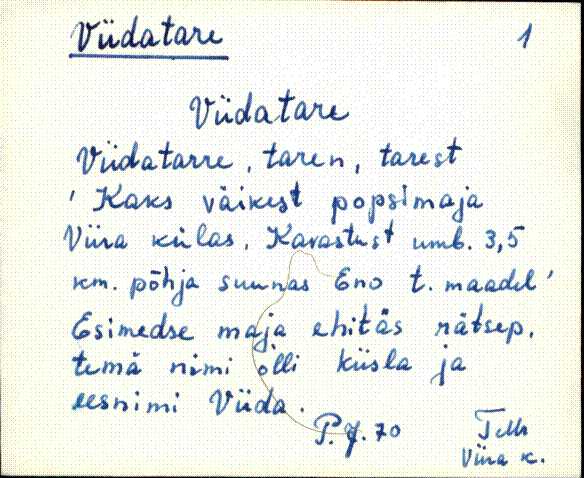 Viidatare 1
Viidatare
Viidatarre, taren, tarest
' Kaks väikest popsimaja
Viira külas, Kavastust umb. 3,5
km. põhja suunas Eno t. maadel '
Esimedse maja ehitäs rätsep,
temä nimi olli küsla ja
eesnimi Viida.
P. J. 70
Viira k.